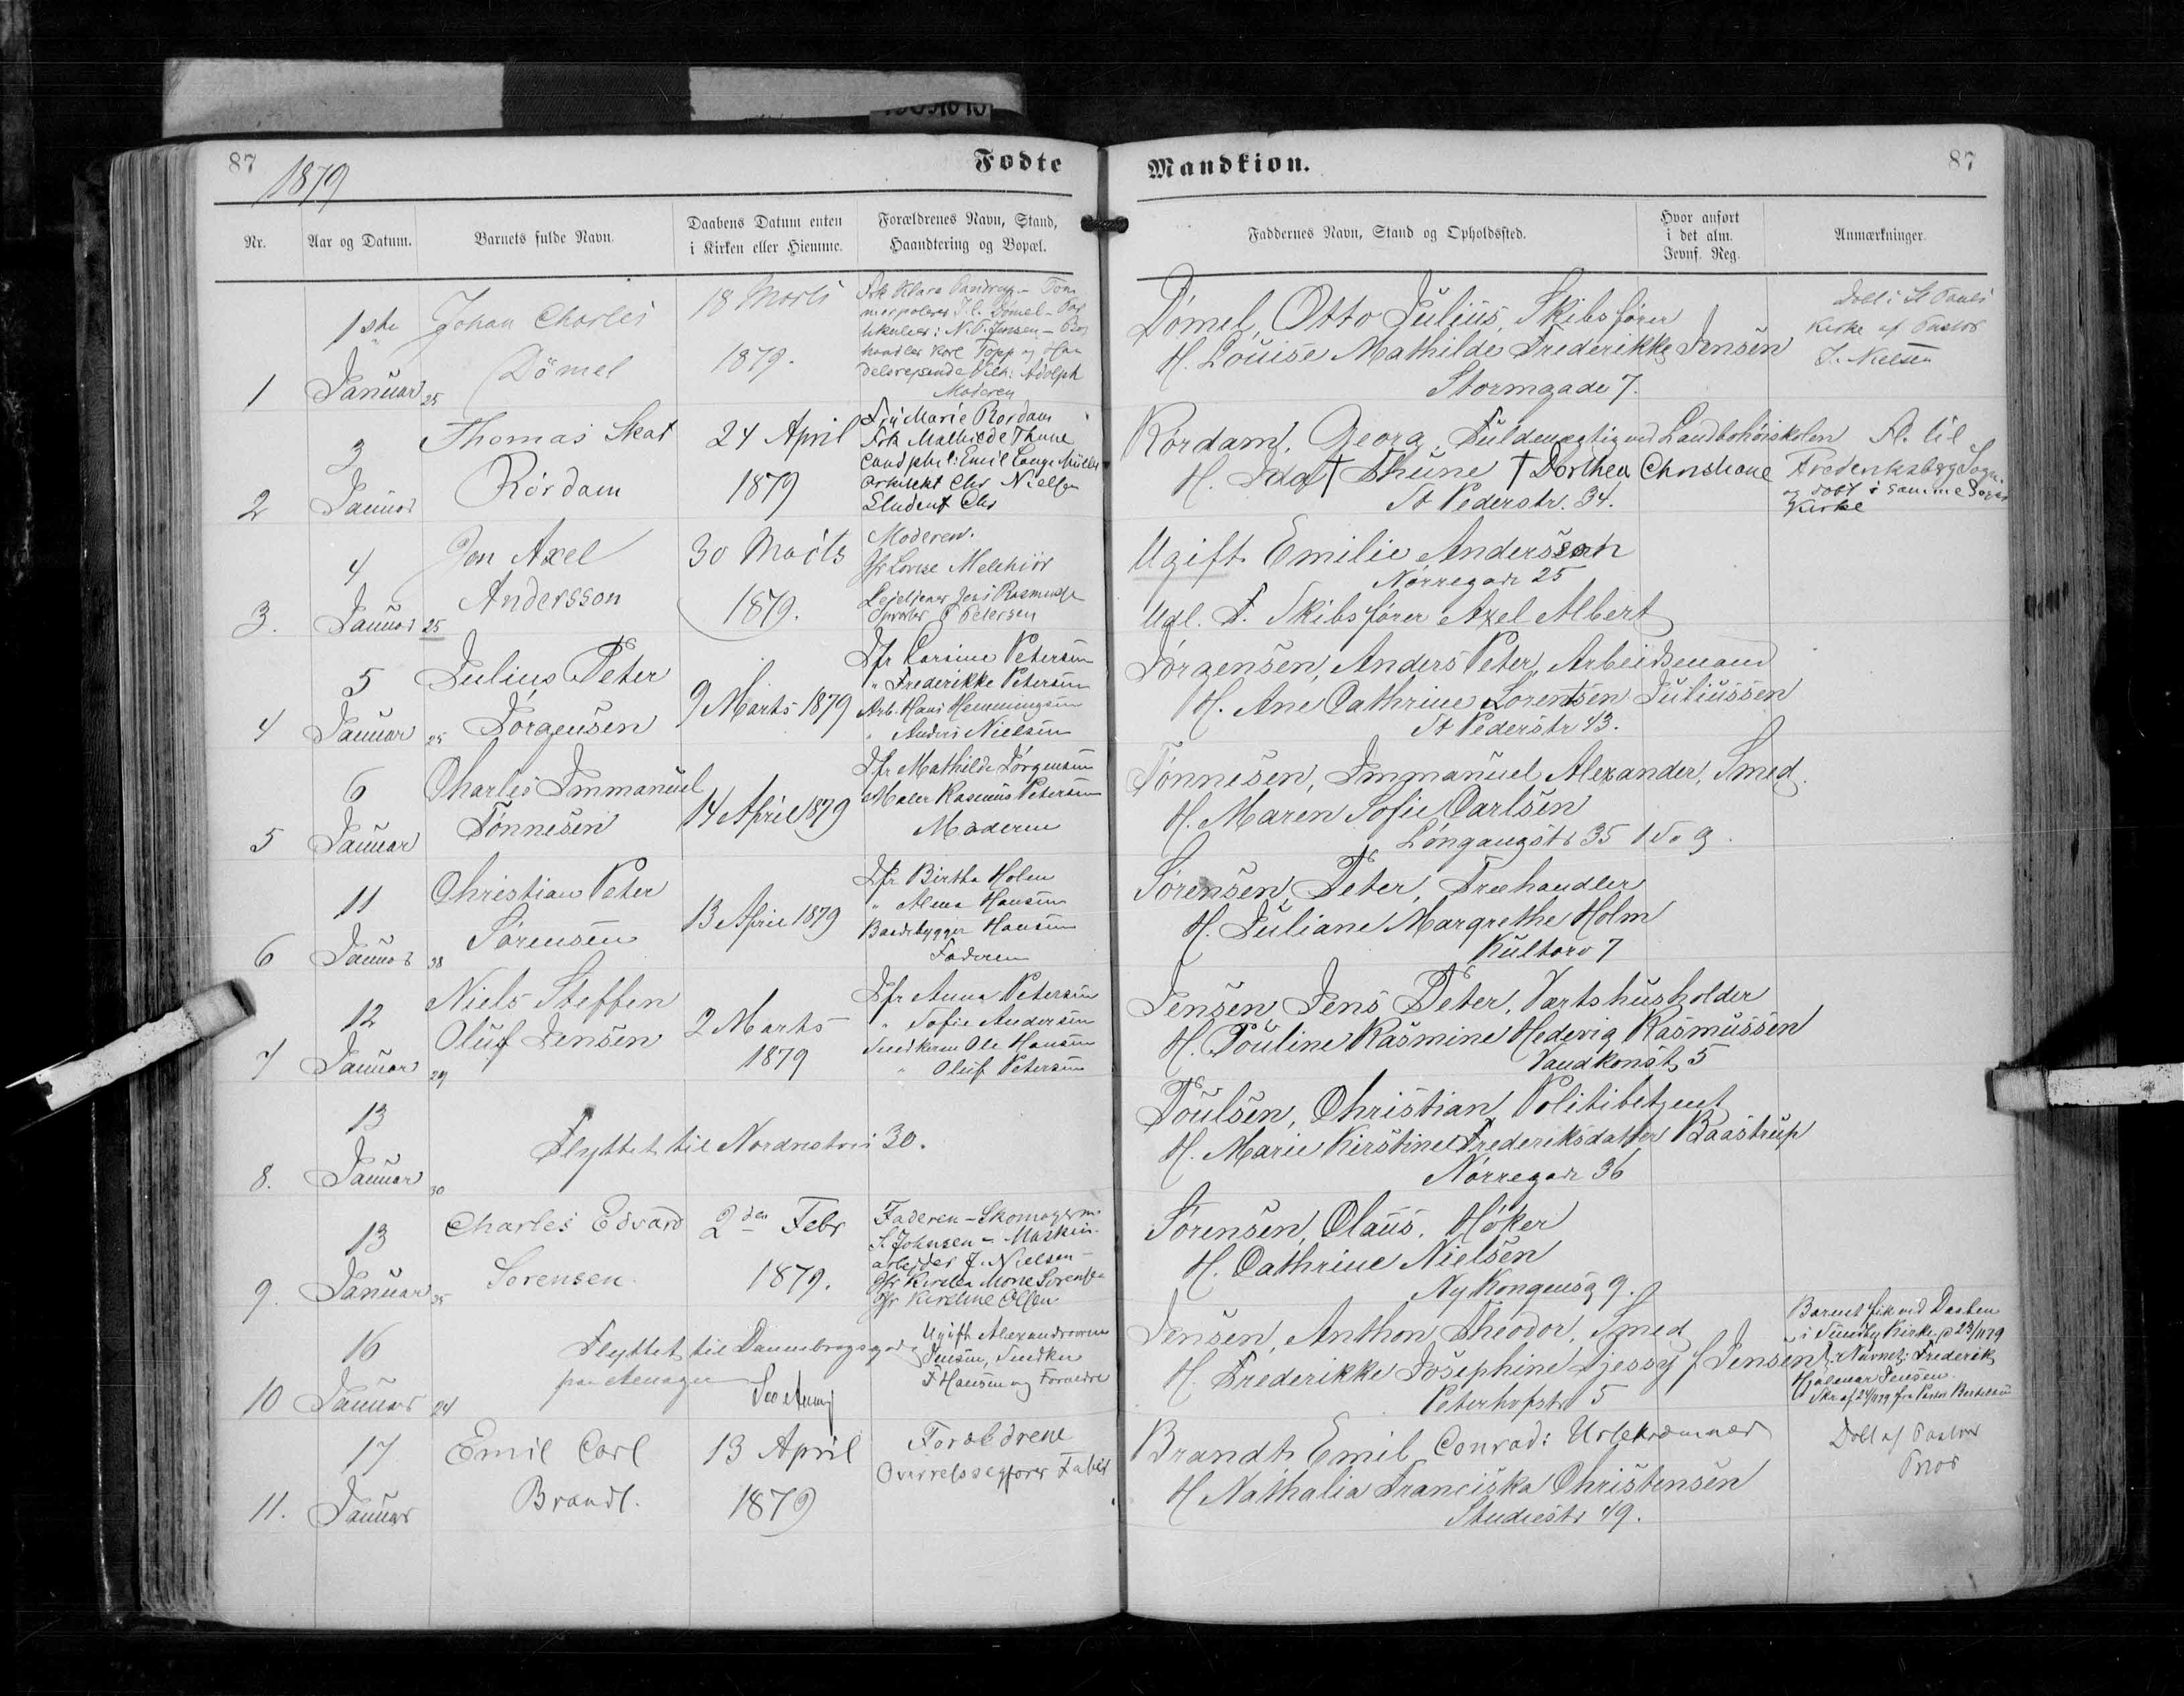 87
1879
Fødte
Nr.
Aar og Datum.
Barnets fulde Navn.
Daabens Datum enten
i Kirken eller Hiemme.
Forældrenes Navn, Stand,
Haandtering og Bopæl.
1ste
Januar
1
25
Johan Charles
Dömel
18 Marts
1879.
Frk Klara
J. C. Dömel
N. P. Jensen
handler Karl Topp og Han
delsrejsende Vilh: Adolph
Moderen
3
Januar
2
Thomas Skat
Rördam
24 April
1879
Fru Marie Rordam
Frk Mathilde Thune
Cand phil: Emil Lange Müller
Arkitekt Chr Nielsen
Student Chr
4
Januar
3.
25
Jon Axel
Andersson
30 Marts
1879.
Moderen.
Jfr Lovise Melchior
Lejetjener Jens Rasmussen
P Petersen
5
Januar
4
25
Julius Peter
Jörgensen
9 Marts 1879
Jfr Larsine Petersen
" Frederikke Petersen
Arb. Hans Hemmingsen
" Anders Nielsen
6
Januar
5
Charles Immanuel
Tönnesen
14 April 1879
Jfr Mathilde Jörgensen
Maler Rasmus Petersen
Moderen
11
Januar
6
28
Christian Peter
Sörensen
13 April 1879
Jfr Birtha Holm
" Anna Hansen
Baadebygger Hansen
Faderen
12
Januar
7
29
Niels Steffen
Oluf Jensen
2 Marts
1879
Jfr Anna Petersen
" Sofie Andersen
Snedkersv Ole Hansen
" Oluf Petersen
13
Januar
8.
30
Flyttet til Nordvestvei 30.
13
Januar
9.
25
Charles Edvard
Sorensen.
2den Febr
1879.
Faderen - Skomagerm.
S. Johnsen - Maskin-
arbejder J. Nielsen -
Jfr Kirstin Marie Sorensen
Jfr Kirstine Olsen
16
Januar
10
24
Flyttet til Dannebrogsgade
fra Amager
See Anm
Ugift Alexandrovine
Jensen, Snedker
F Hansen og Forældre
17
Januar
11.
Emil Carl
Brandt.
13 April
1879
Forældrene
Overretssagfører
Mandkiøn.
87
Faddernes Navn, Stand og Opholdssted.
Hvor anført
i det alm.
Jevnf. Reg.
Anmærkninger.
Dömel, Otto Julius, Skibsfører
H. Louise Mathilde Frederikke Jensen
Stormgade 7.
Döbt i St Pauls
Kirke af Pastor
J. Nielsen
Rördam, Georg, Fuldmægtig ved Landbohöiskolen
H. Ida † Thune † Dorthea Christiane
St Pederstr. 34.
Fl. til
Frederiksberg Sogn.
og döbt i samme Sogns
Kirke
Ugift Emilie Andersson
Nörregade 25
Udl. F. Skibsfører Axel Albert
Jörgensen, Anders Peter, Arbeidsmand
H. Ane Cathrine Lorentsen Juliussen
St Pederstr 43.
Tönnesen, Immanuel Alexander, Smed.
H. Maren Sofie Carlsen
Löngangstr 35
Sörensen, Peter, Træhandler
H. Juliane Margrethe Holm
Kultorv 7
Jensen Jens Peter, Værtshusholder
H. Pouline Rasmine Hedevig Rasmussen
Vandkonst 5
Poulsen, Christian, Politibetjent
H. Marie Kirstine Frederiksdatter Baastrup
Nörregade 36
Sörensen, Claus, Höker
H. Cathrine Nielsen
Ny Kongensg 9.
Jensen, Anthon Theodor, Smed
H. Frederikke Josephine Djessy f Jensen
Peterhofstr 5
Barnet fik ved Daaben
i Sundby Kirke d 23/11 79
Navnet: Frederik
Hjalmar Jensen.
Brandt Emil Conrad: Urtekræmmer
H Nathalia Franciska Christensen
Studiestr 49.
Döbt af Pastor
Prior